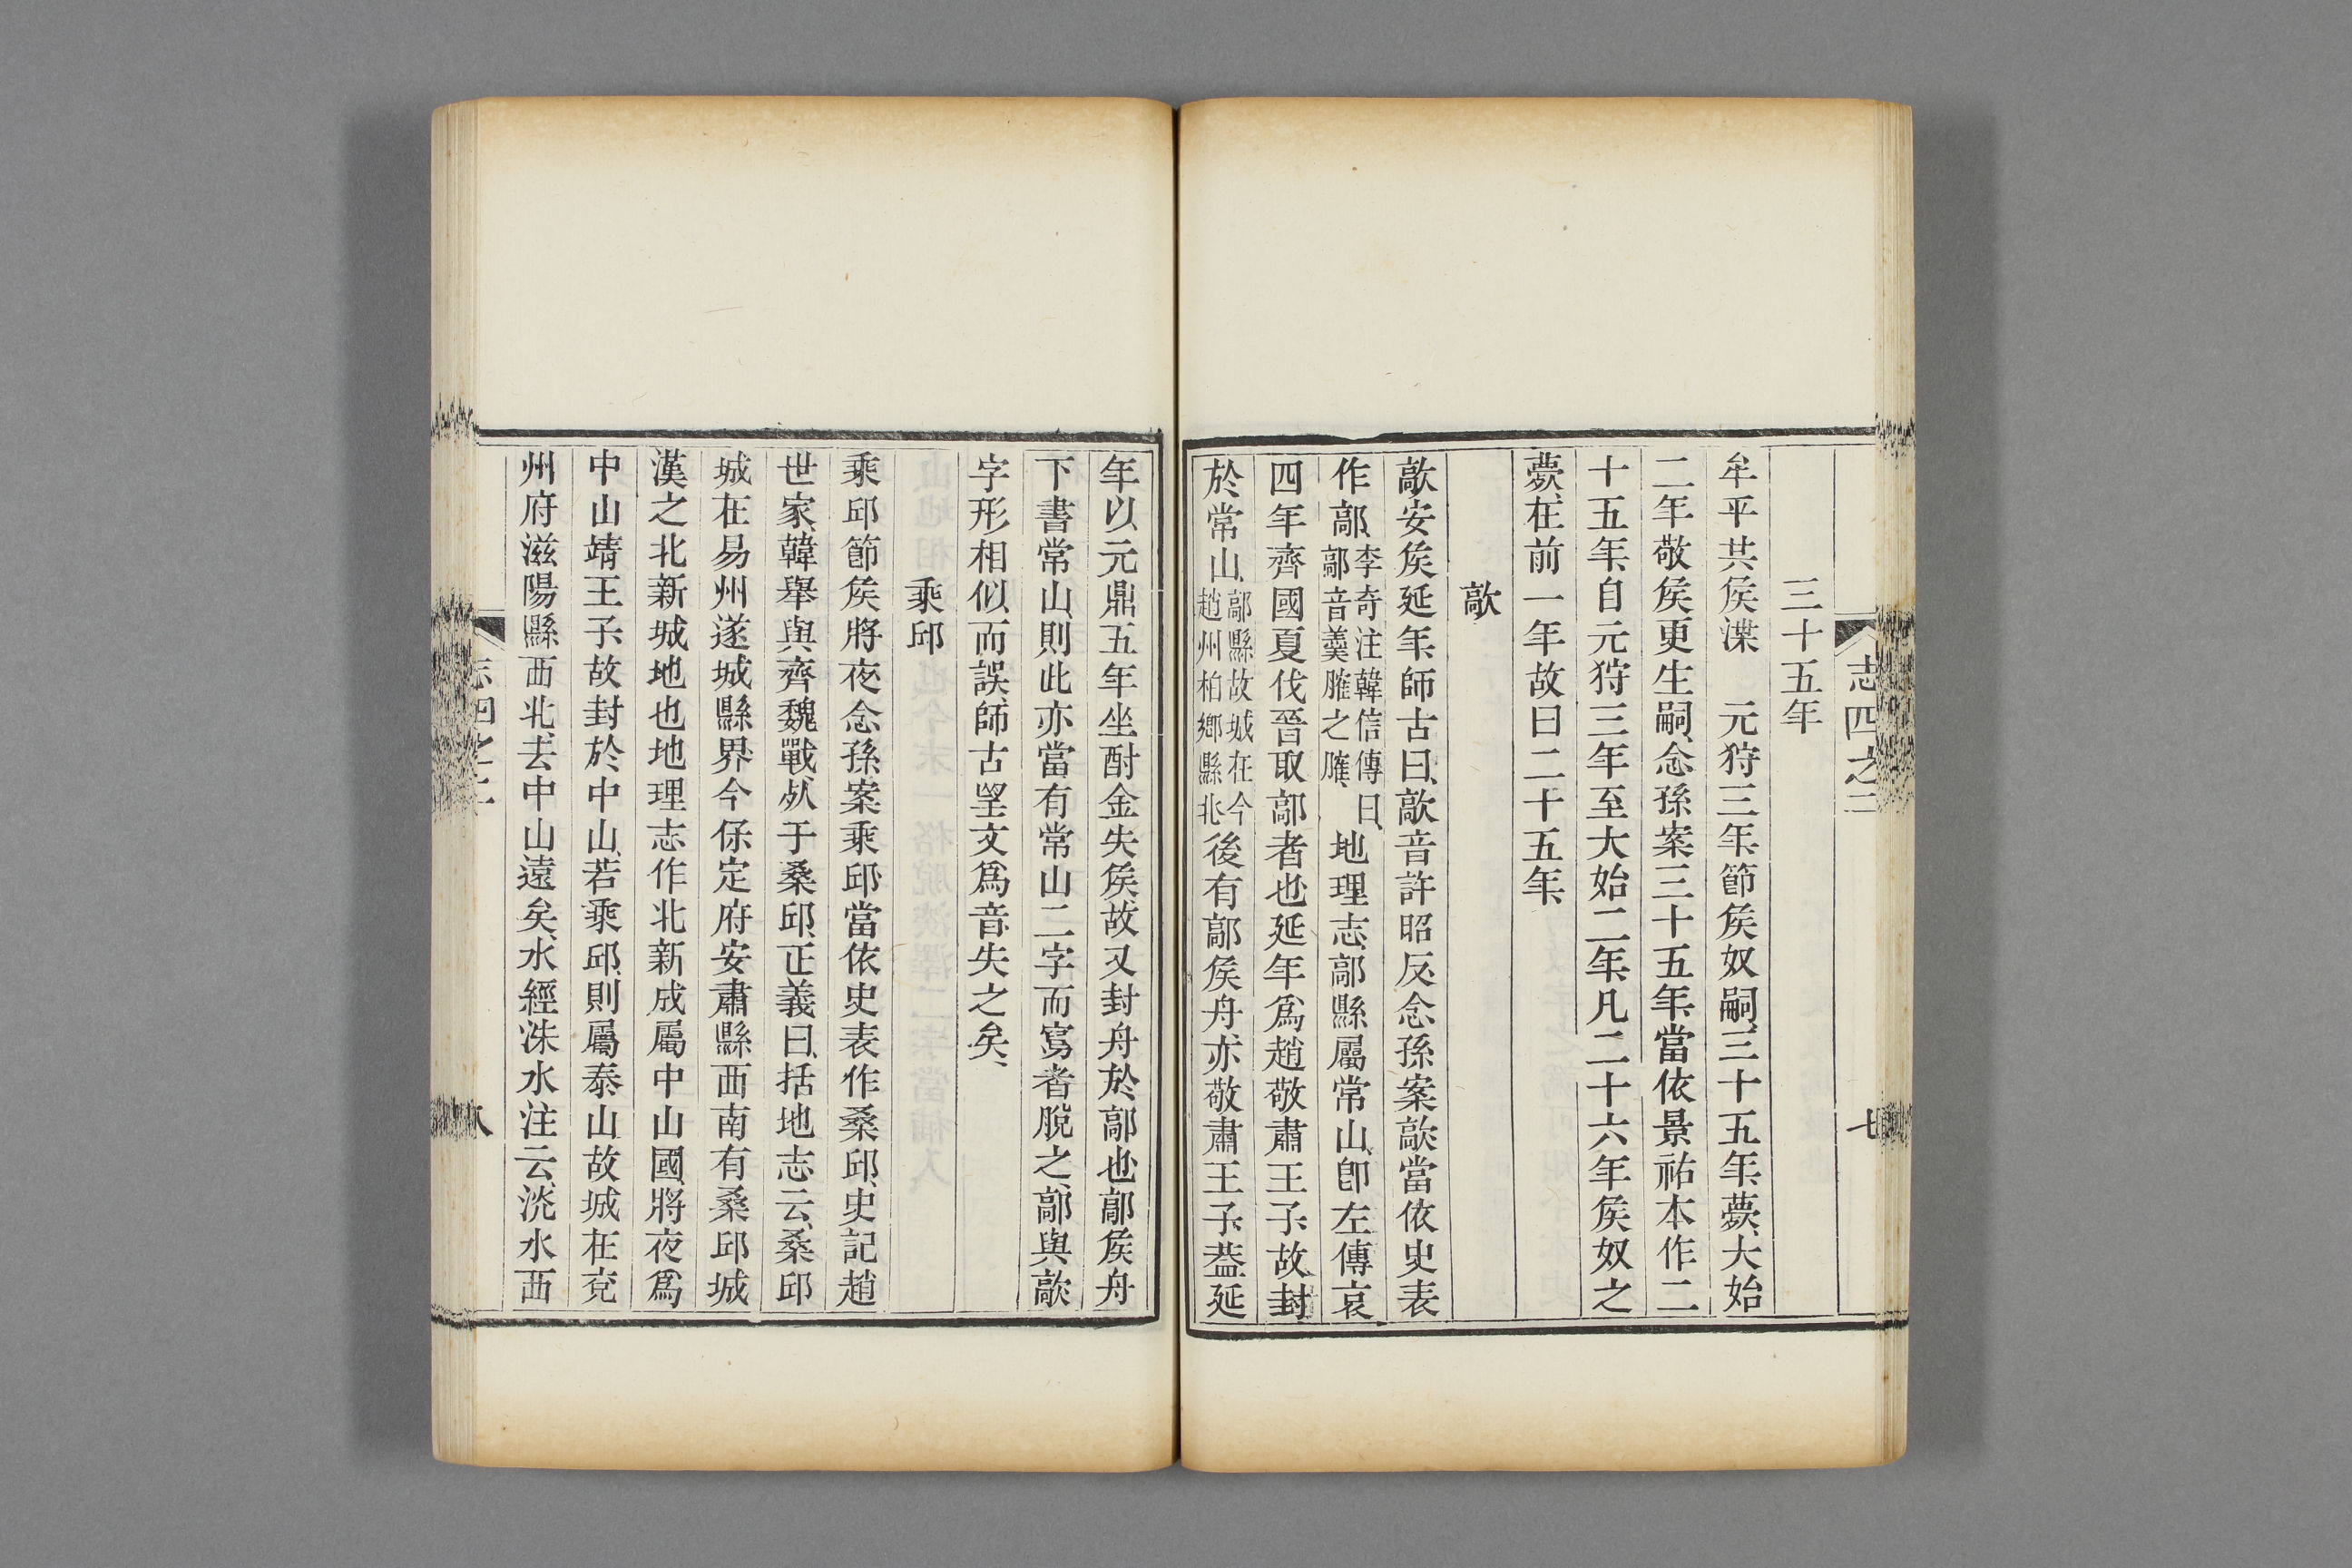 志四之二
七
三十五年
牟平共侯渫　元狩三年節侯奴嗣三十五年薨大始
二年敬侯更生嗣念孫案三十五年當依景祐本作二
十五年自元狩三年至大始二年凡二十六年侯奴之
薨在前一年故曰二十五年
歊
歊安侯延年師古曰歊音許昭反念孫案歊當依史表
作鄗李奇注韓信傳曰鄗音羹臛之臛地理志鄗縣屬常山卽左傳哀
四年齊國夏伐晉取鄗者也延年爲趙敬肅王子故封
於常山鄗縣故城在今趙州柏鄉縣北後有鄗侯舟亦敬肅王子葢延
年以元鼎五年坐酎金失侯故又封舟於鄗也鄗侯舟
下書常山則此亦當有常山二字而寫者脫之鄗與歊
字形相似而誤師古望文爲音失之矣
乘邱
乘邱節侯將夜念孫案乘邱當依史表作桑邱史記趙
世家韓舉與齊魏戰㱾于桑邱正義曰括地志云桑邱
城在易州遂城縣界今保定府安肅縣西南有桑邱城
漢之北新城地也地理志作北新成屬中山國將夜爲
中山靖王子故封於中山若乘邱則屬泰山故城在兖
州府滋陽縣西北去中山遠矣水經洙水注云洸水西
志四之二
八